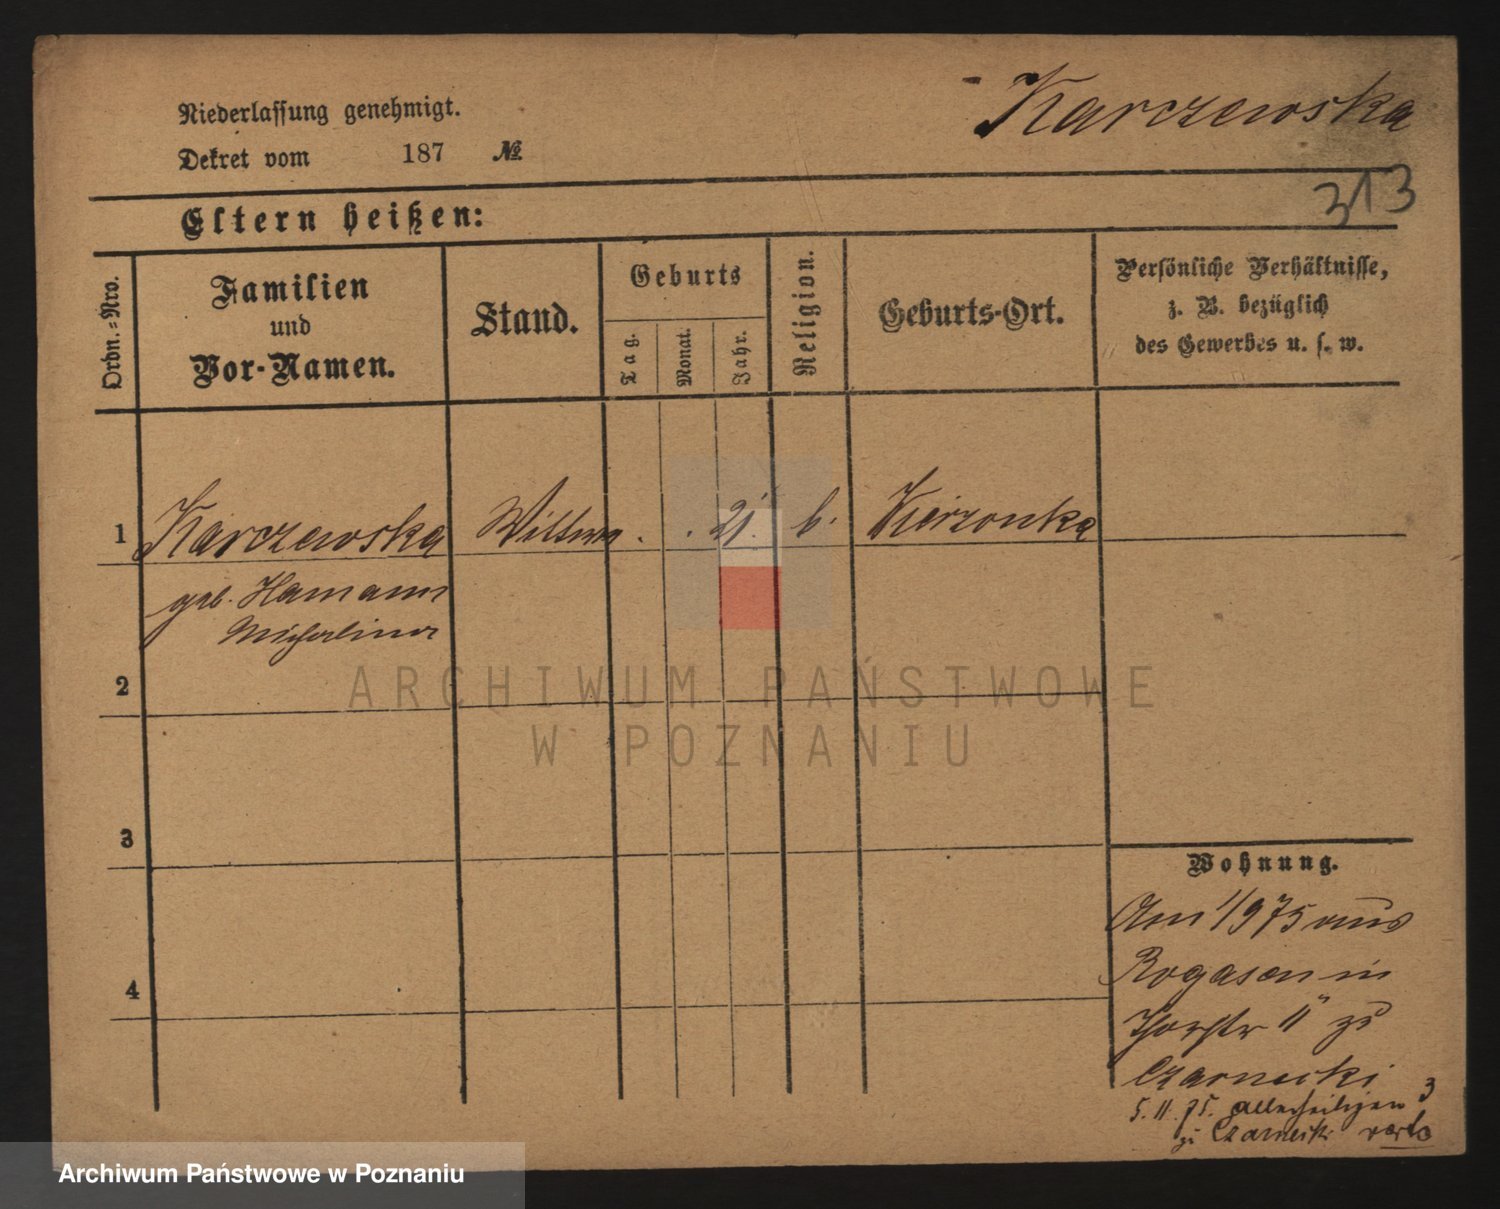 Karczewska
Niederlassung genehmigt.
Dekret vom 187 №
313
Eltern heißen:
Ordn.=Nro.
Familien
und
Vor-Namen.
Stand.
Geburts
Tag.
Monat.
Jahr.
Religion.
Geburts-Ort.
Persönliche Verhältnisse,
z. B. bezüglich
des Gewerbes u. s. w.
1 Karczewska Wittwe . . 21. k. Kierzonka
geb. Hamann
Michalina
2
3
4
Wohnung.
Am 1/9 75 aus
Rogasen in
Thorstr 11 zu
Czarnecki
5.11.75. Allerheiligen 3
zu Czarnecki verte
ARCHIWUM PAŃSTWOWE
W POZNANIU
Archiwum Państwowe w Poznaniu